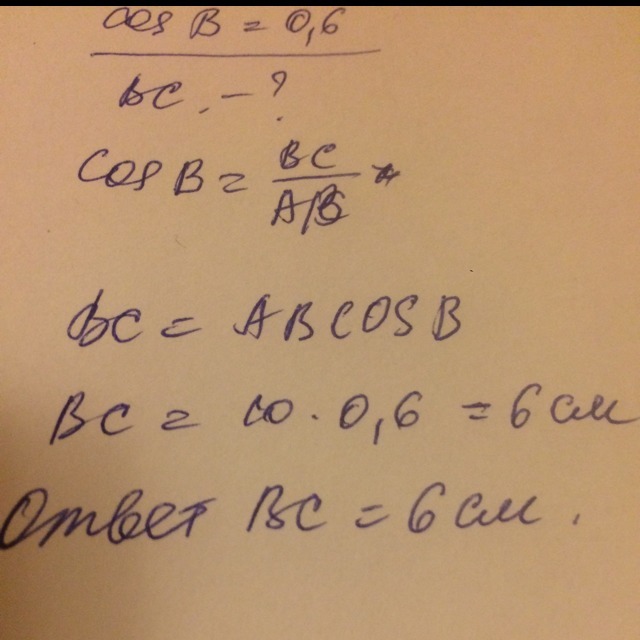 cos B = 0,6
BC - ?
cos B = BC / AB
BC = AB COS B
BC = 10 · 0,6 = 6 см
Ответ BC = 6 см.